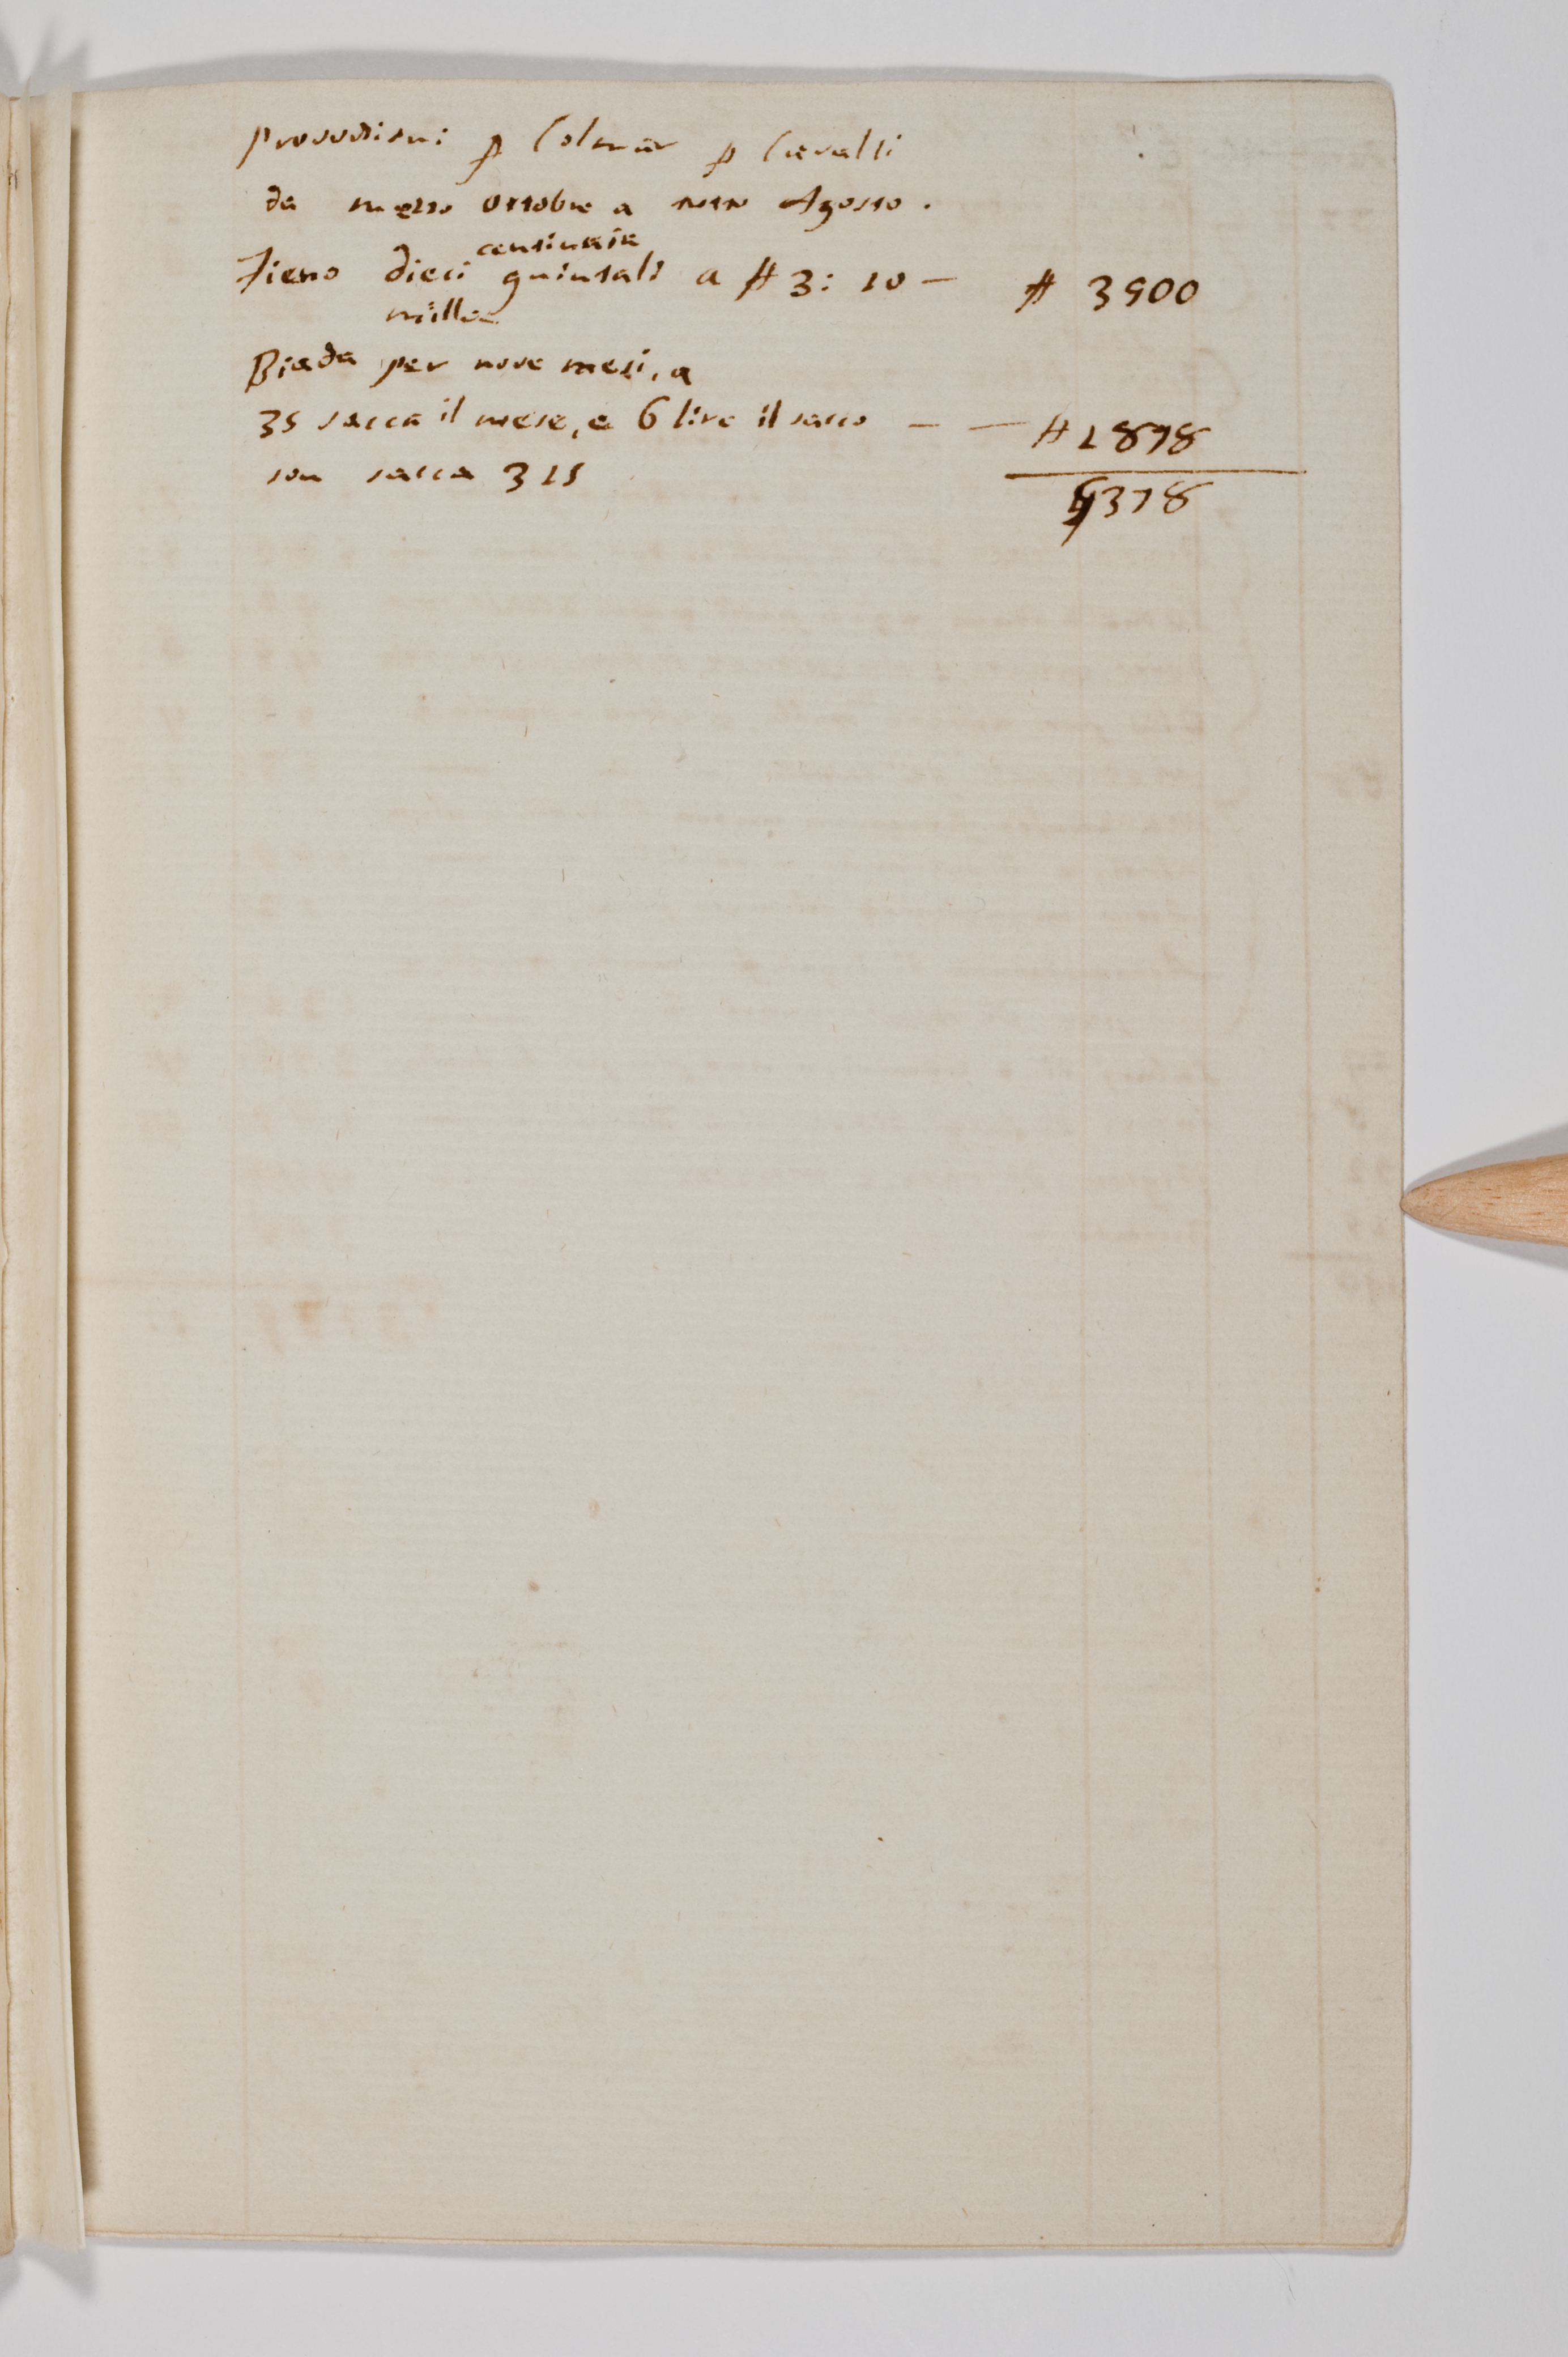 Provvisioni p Colmar p Cavalli
da mezzo Ottobre a tutto Agosto.
centinaia
Fieno dieci quintali a # 3: 10 — # 3500
mille
Biada per nove mesi, a
35 sacca il mese, e 6 lire il sacco — — # 1878
son sacca 315
5378